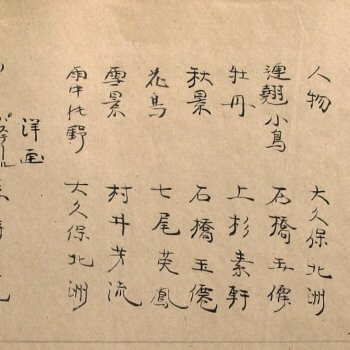 人物 大久保北洲
連翹小鳥 石橋玉僊
牡丹 上杉素軒
秋景 石橋玉僊
花鳥 七尾英鳳
雪景 村井芳流
雨中牧野 大久保北洲
洋画